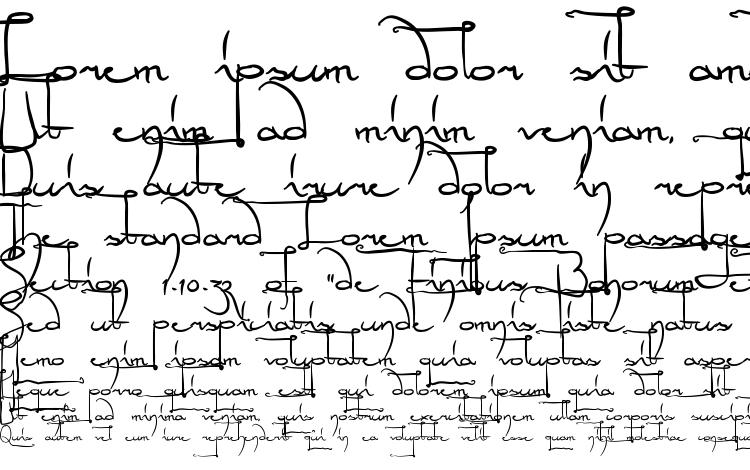 Lorem ipsum dolor sit am
Ut enim ad minim veniam, qu
Duis aute irure dolor in repr
e standard Lorem Ipsum passage
ection 1.10.32 of "de Finibus Bonorum et
Sed ut perspiciatis unde omnis iste natus
Nemo enim ipsam voluptatem quia voluptas sit asper
Neque porro quisquam est, qui dolorem ipsum quia dolor sit
Ut enim ad minima veniam, quis nostrum exercitationem ullam corporis suscipi
Quis autem vel eum iure reprehenderit qui in ea voluptate velit esse quam nihil molestiae consequa